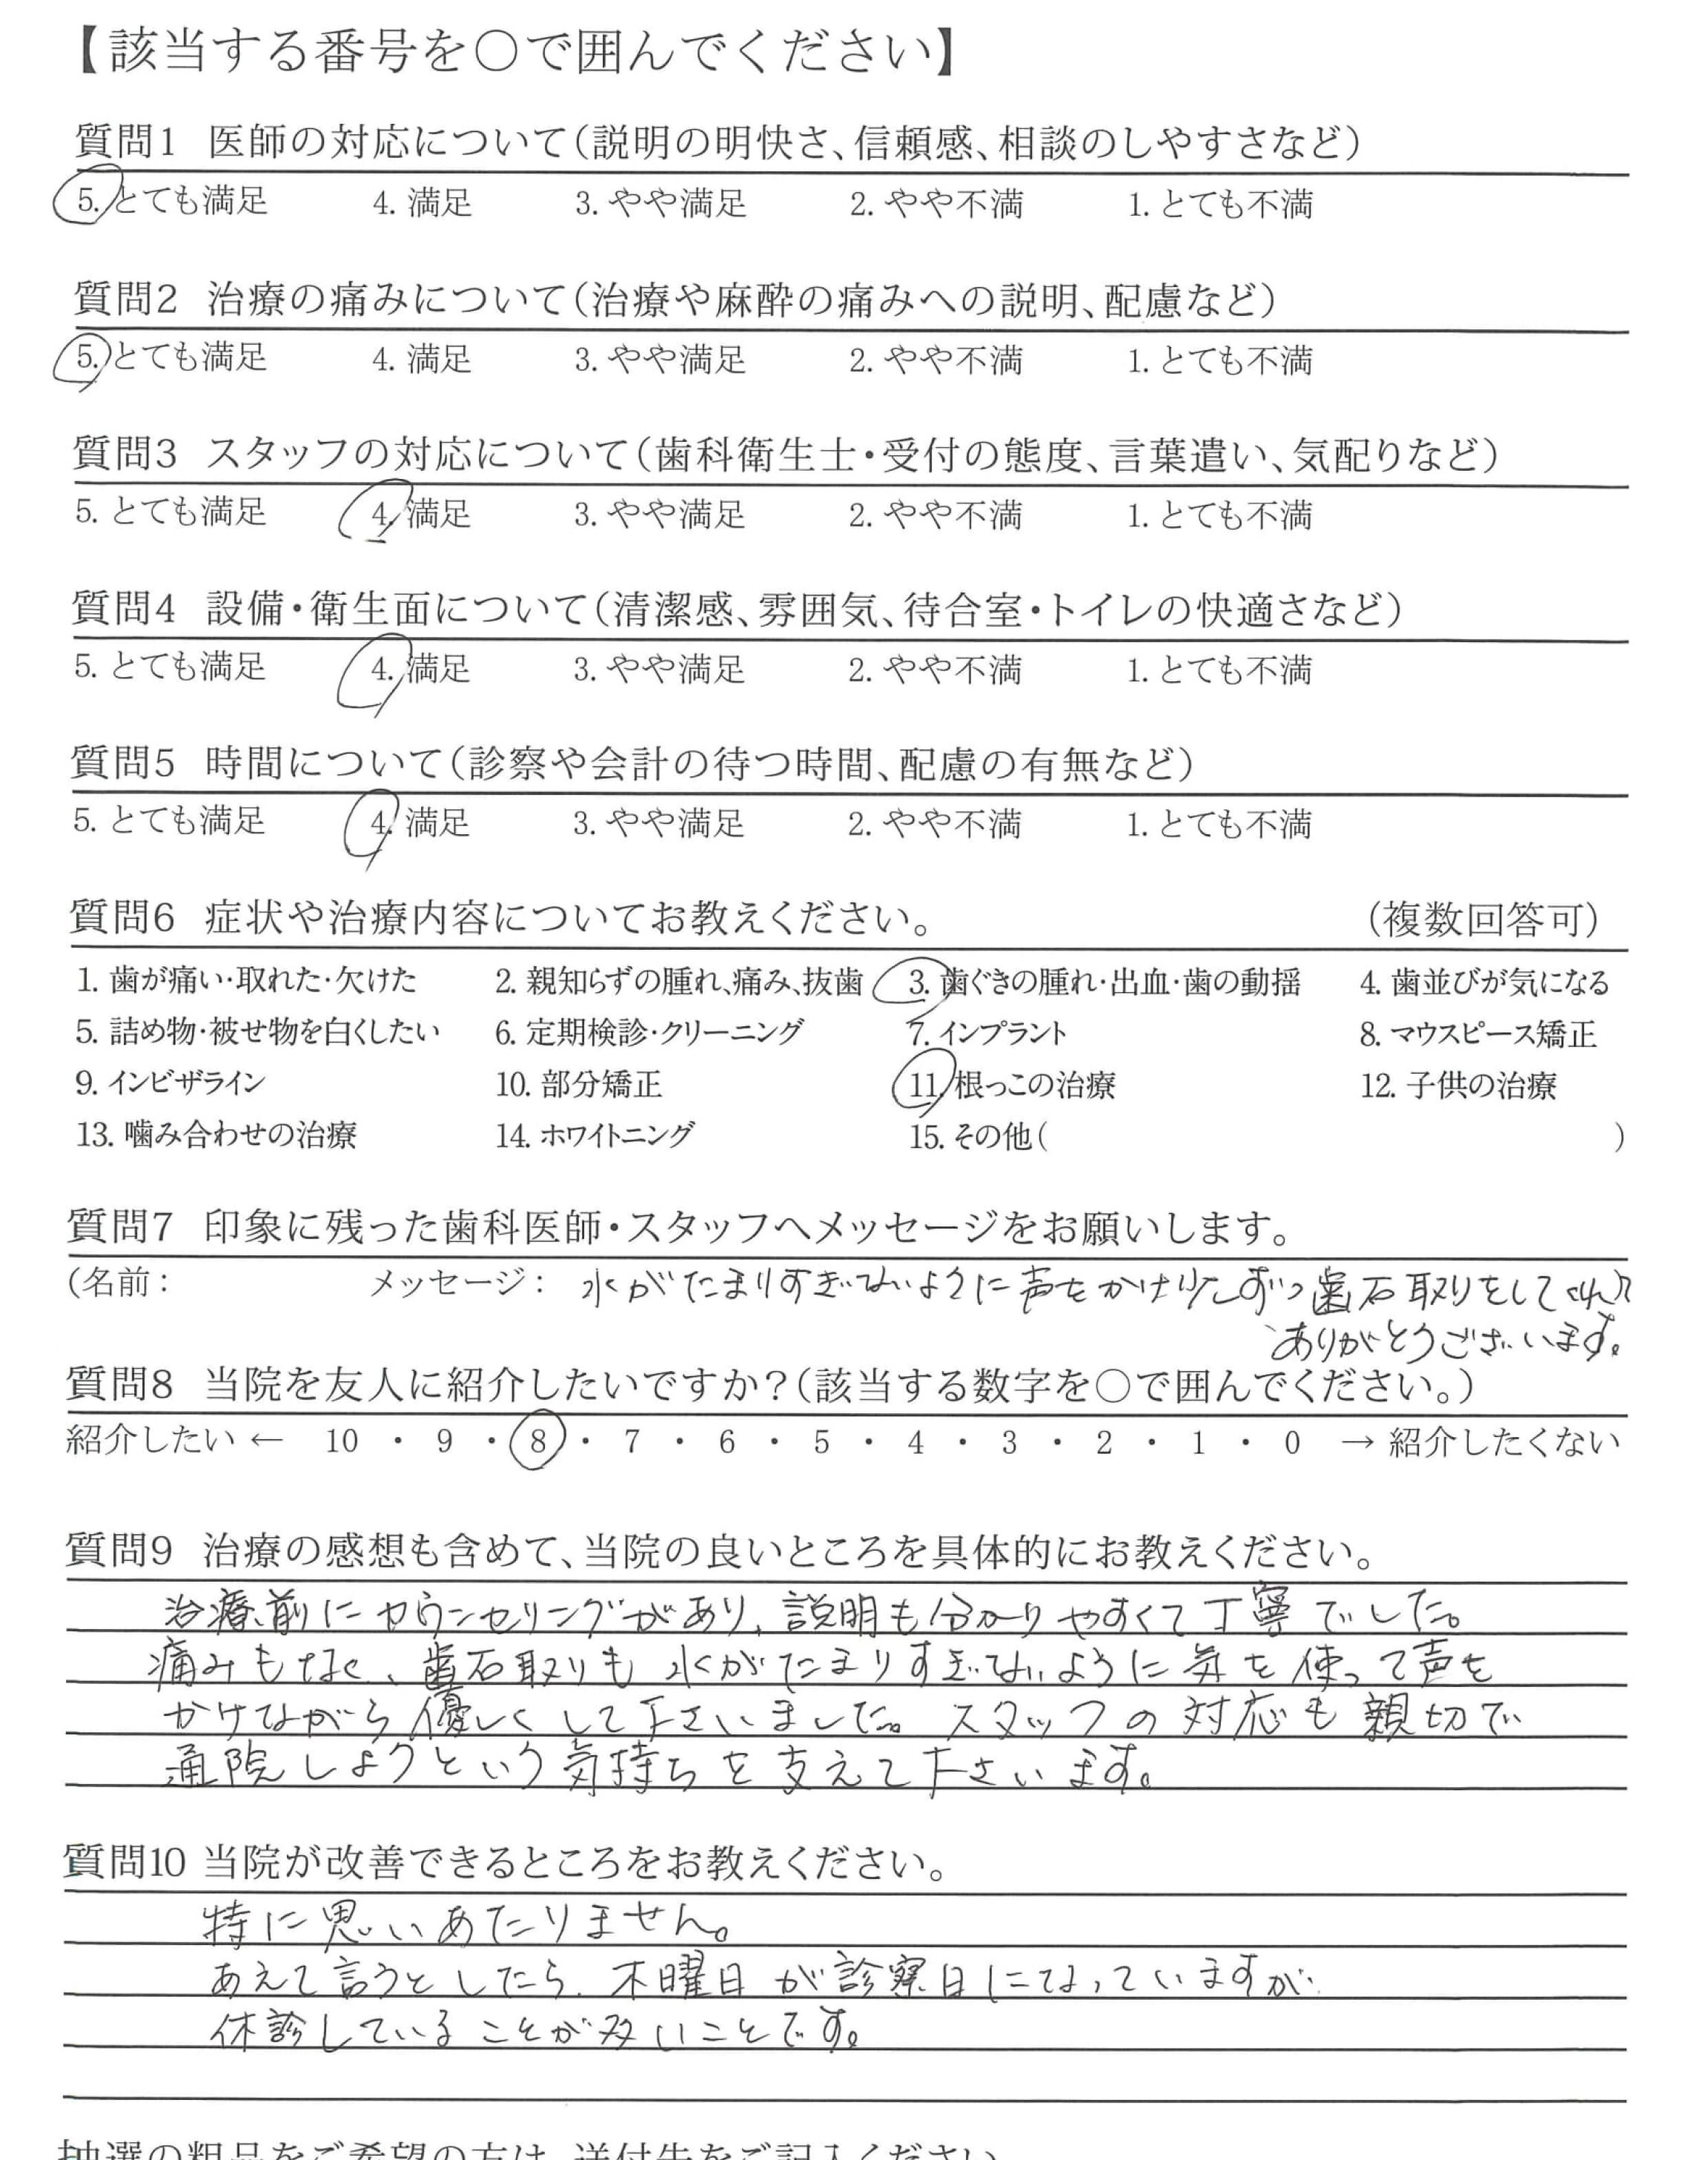 【該当する番号を○で囲んでください】
質問1 医師の対応について(説明の明快さ、信頼感、相談のしやすさなど)
5. とても満足 4. 満足 3. やや満足 2. やや不満 1. とても不満
質問2 治療の痛みについて(治療や麻酔の痛みへの説明、配慮など)
5. とても満足 4. 満足 3. やや満足 2. やや不満 1. とても不満
質問3 スタッフの対応について(歯科衛生士・受付の態度、言葉遣い、気配りなど)
5. とても満足 4. 満足 3. やや満足 2. やや不満 1. とても不満
質問4 設備・衛生面について(清潔感、雰囲気、待合室・トイレの快適さなど)
5. とても満足 4. 満足 3. やや満足 2. やや不満 1. とても不満
質問5 時間について(診察や会計の待つ時間、配慮の有無など)
5. とても満足 4. 満足 3. やや満足 2. やや不満 1. とても不満
質問6 症状や治療内容についてお教えください。 (複数回答可)
1. 歯が痛い・取れた・欠けた 2. 親知らずの腫れ、痛み、抜歯 3. 歯ぐきの腫れ・出血・歯の動揺 4. 歯並びが気になる
5. 詰め物・被せ物を白くしたい 6. 定期検診・クリーニング 7. インプラント 8. マウスピース矯正
9. インビザライン 10. 部分矯正 11. 根っこの治療 12. 子供の治療
13. 噛み合わせの治療 14. ホワイトニング 15. その他( )
質問7 印象に残った歯科医師・スタッフへメッセージをお願いします。
(名前: メッセージ: 水がたまりすぎないように声をかけ少しずつ歯石取りをしてくれて
ありがとうございます。
質問8 当院を友人に紹介したいですか?(該当する数字を○で囲んでください。)
紹介したい ← 10 ・ 9 ・ 8 ・ 7 ・ 6 ・ 5 ・ 4 ・ 3 ・ 2 ・ 1 ・ 0 → 紹介したくない
質問9 治療の感想も含めて、当院の良いところを具体的にお教えください。
治療前にカウンセリングがあり、説明も分かりやすくて丁寧でした。
痛みもなく、歯石取りも水がたまりすぎないように気を使って声を
かけながら優しくして下さいました。スタッフの対応も親切で
通院しようという気持ちを支えて下さいます。
質問10 当院が改善できるところをお教えください。
特に思いあたりません。
あえて言うとしたら、木曜日が診察日になっていますが
休診していることが多いことです。
抽選の粗品をご希望の方は、送付先をご記入ください